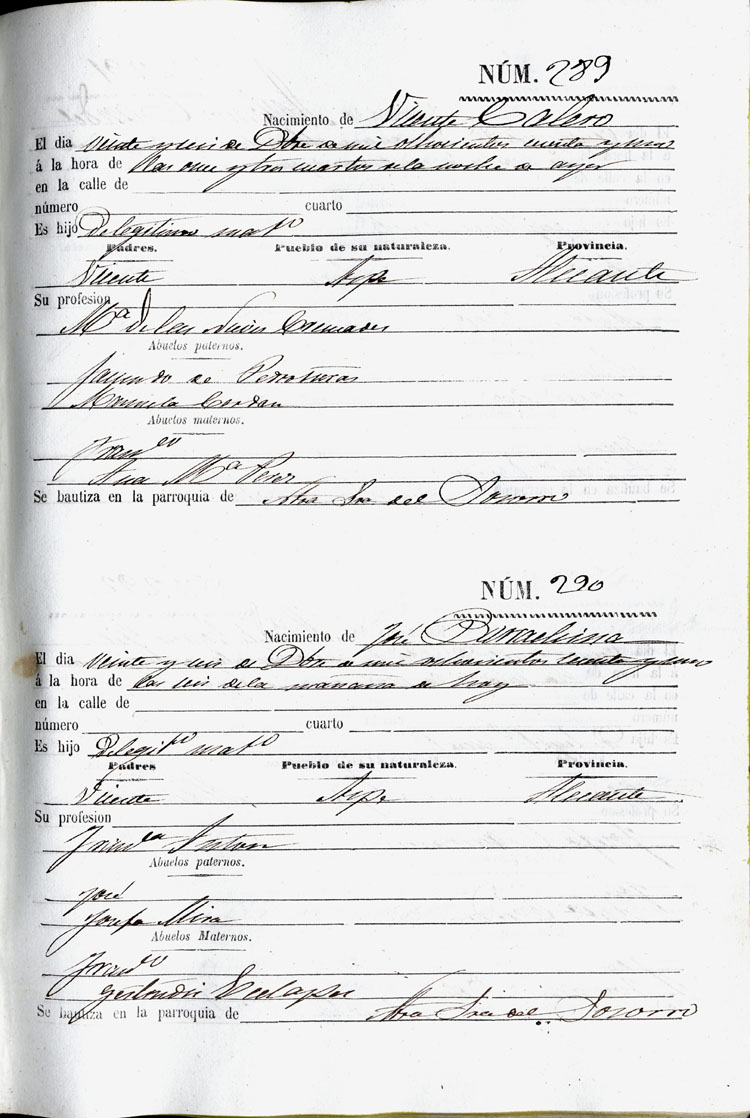 NÚM. 289
Nacimiento de Vicente Calero
El dia veinte y seis de Dbre de mil ochocientos cuenta y uno
á la hora de las once y tres cuartos de la noche de ayer
en la calle de
número cuarto
Es hijo De legitimo matº
Padres. Pueblo de su naturaleza. Provincia.
Vicente Aspe Alicante
Su profesion
Mª de las Nieves Cremades
Abuelos paternos.
de
Manuela Cerdan
Abuelos maternos.
Franco
Ana Mª Perez
Se bautiza en la parroquia de Ntra Sra del Socorro
NÚM. 290
Nacimiento de José Barrachina
El dia veinte y seis de Dbre de mil ochocientos cuenta y uno
á la hora de las seis de la mañana de hoy
en la calle de
número cuarto
Es hijo De legitº matº
Padres Pueblo de su naturaleza. Provincia.
Vicente Aspe Alicante
Su profesion
Francª Anton
Abuelos paternos.
José
Josefa Mira
Abuelos Maternos.
Franco
Gertrudis
Se bautiza en la parroquia de Ntra Sra del Socorro